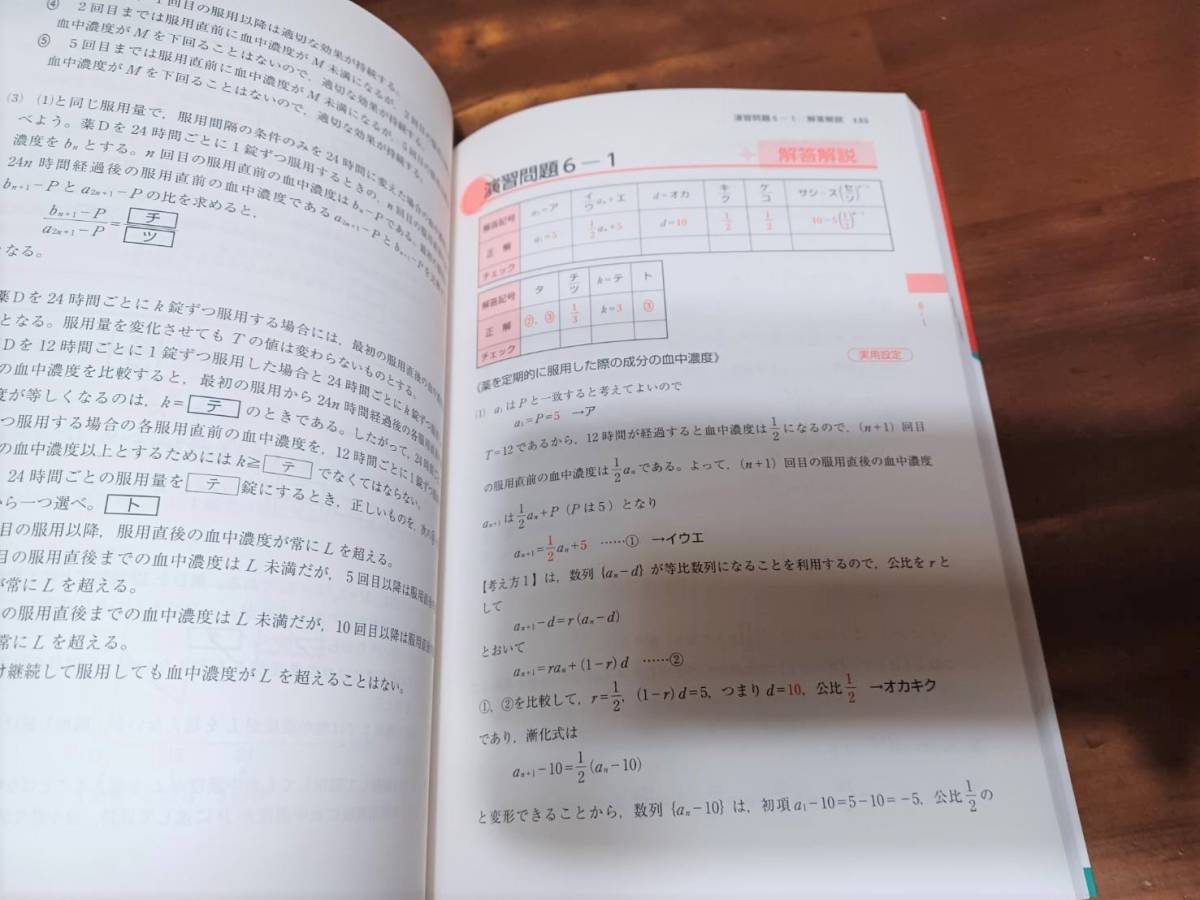 1回目の服用以降は適切な効果が持続する。
④ 2回目までは服用直前に血中濃度がM未満になるが、2回目の
血中濃度がMを下回ることはないので、適切な効果が持続する。
⑤ 5回目までは服用直前に血中濃度がM未満になるが、5回目の
血中濃度がMを下回ることはないので、適切な効果が持続する。
(3) (1)と同じ服用量で、服用間隔の条件のみを24時間に変えた場合の
べよう。薬Dを24時間ごとに1錠ずつ服用するときの、n回目の服用直後の
濃度をbnとする。n回目の服用直前の血中濃度はbn−Pである。最初の
24n時間経過後の服用直前の血中濃度であるa2n+1−Pとbn+1−Pを
bn+1−Pとa2n+1−Pの比を求めると、
bn+1−P/a2n+1−P=チ/ツ
となる。
薬Dを24時間ごとにk錠ずつ服用する場合には、最初の服用直後の血中
となる。服用量を変化させてもTの値は変わらないものとする。
Dを12時間ごとに1錠ずつ服用した場合と24時間ごとにk錠ずつ
の血中濃度を比較すると、最初の服用から24n時間経過後の各服用直前の
度が等しくなるのは、k=テのときである。したがって、24時間
つ服用する場合の各服用直前の血中濃度を、12時間ごとに1錠ずつ
の血中濃度以上とするためにはk≧テでなくてはならない。
24時間ごとの服用量をテ錠にするとき、正しいものを、次の
から一つ選べ。ト
目の服用以降、服用直後の血中濃度が常にLを超える。
目の服用直後までの血中濃度はL未満だが、5回目以降は服用直後の
が常にLを超える。
の服用直後までの血中濃度はL未満だが、10回目以降は服用直後の
常にLを超える。
け継続して服用しても血中濃度がLを超えることはない。
演習問題6−1 解答解説
演習問題6−1 解答解説
解答記号 a1=ア イ/ウan+エ d=オカ キ/ク ケ/コ サシ−ス(セ/ソ)n−1
正解 a1=5 1/2an+5 d=10 1/2 1/2 10−5(1/2)n−1
チェック
解答記号 タ チ/ツ k=テ ト
正解 ②,③ 1/3 k=3 ③
チェック
6-1
《薬を定期的に服用した際の成分の血中濃度》 実用設定
(1) a1はPと一致すると考えてよいので
a1=P=5 →ア
T=12であるから、12時間が経過すると血中濃度は1/2になるので、(n+1)回目
の服用直前の血中濃度は1/2anである。よって、(n+1)回目の服用直後の血中濃度
an+1は1/2an+P(Pは5)となり
an+1=1/2an+5 ……① →イウエ
【考え方1】は、数列{an−d}が等比数列になることを利用するので、公比をrと
して
an+1−d=r(an−d)
とおいて
an+1=ran+(1−r)d ……②
①、②を比較して、r=1/2, (1−r)d=5, つまりd=10, 公比1/2 →オカキク
であり、漸化式は
an+1−10=1/2(an−10)
と変形できることから、数列{an−10}は、初項a1−10=5−10=−5, 公比1/2の